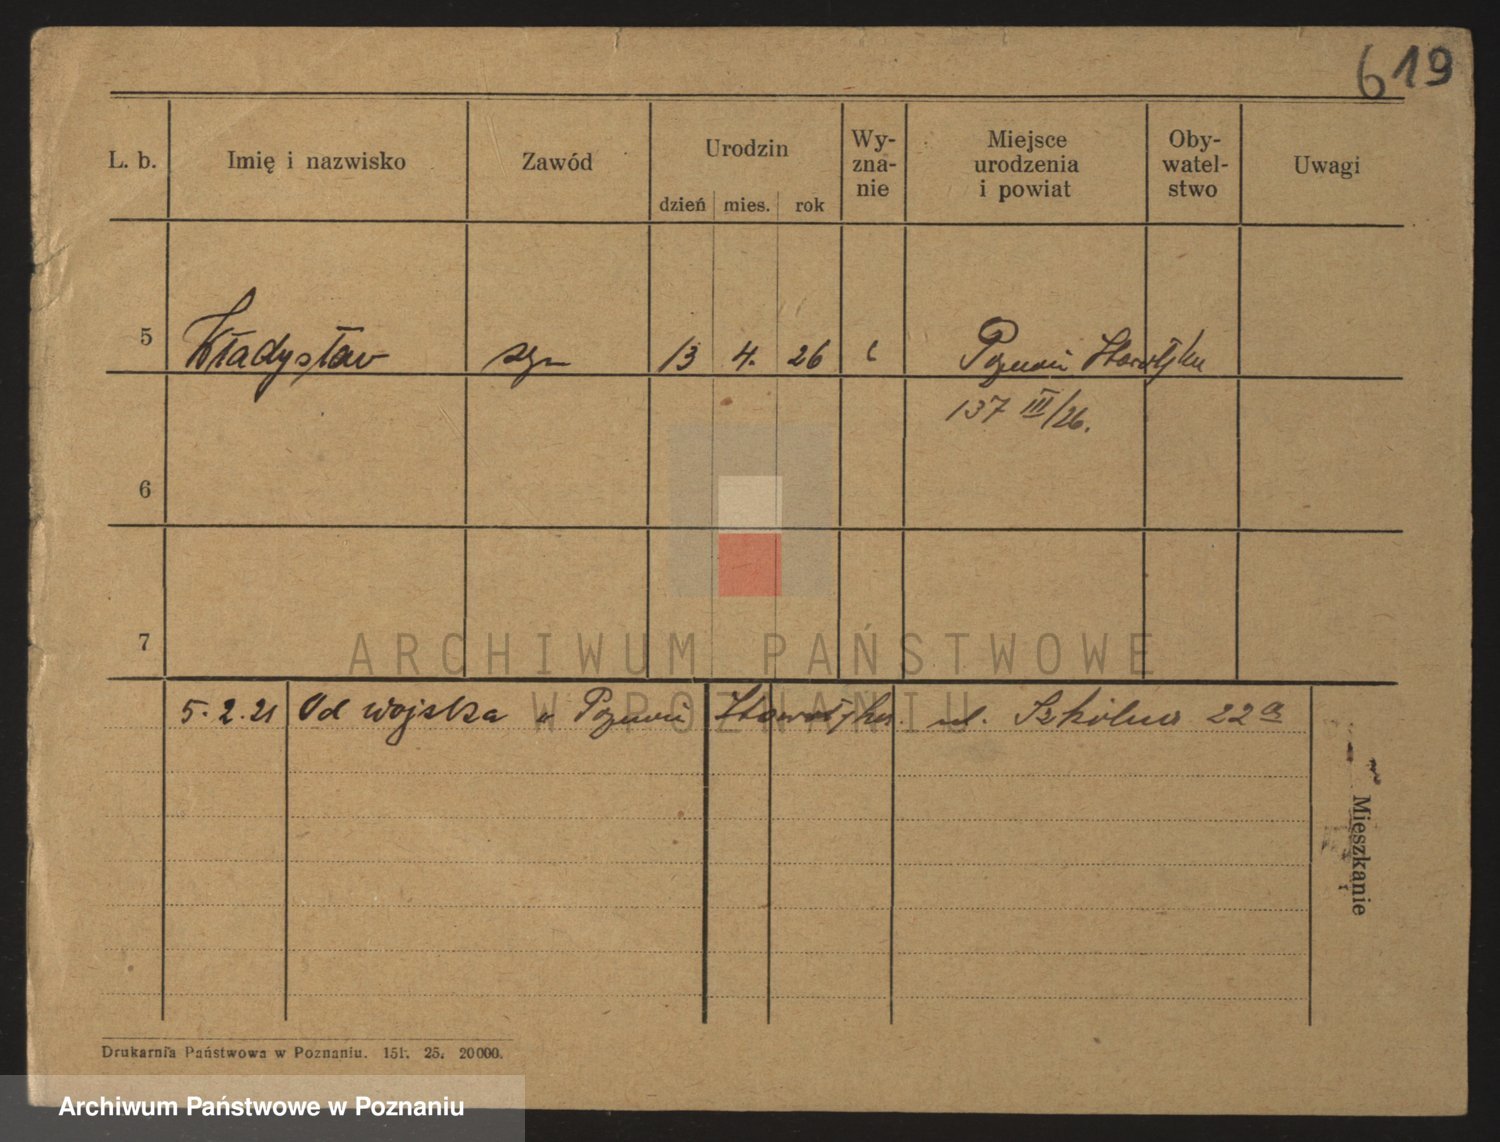 619
L. b. Imię i nazwisko Zawód Urodzin Wy-zna-nie Miejsce urodzenia i powiat Oby-watel-stwo Uwagi
dzień mies. rok
5 Władysław syn 13 4. 26 Poznań
137 III/26.
6
7
ARCHIWUM PAŃSTWOWE
W POZNANIU
5.2.21 Od wojska w Poznań ul. Szkolna 22a
Mieszkanie
Drukarnia Państwowa w Poznaniu. 151. 25. 20000.
Archiwum Państwowe w Poznaniu